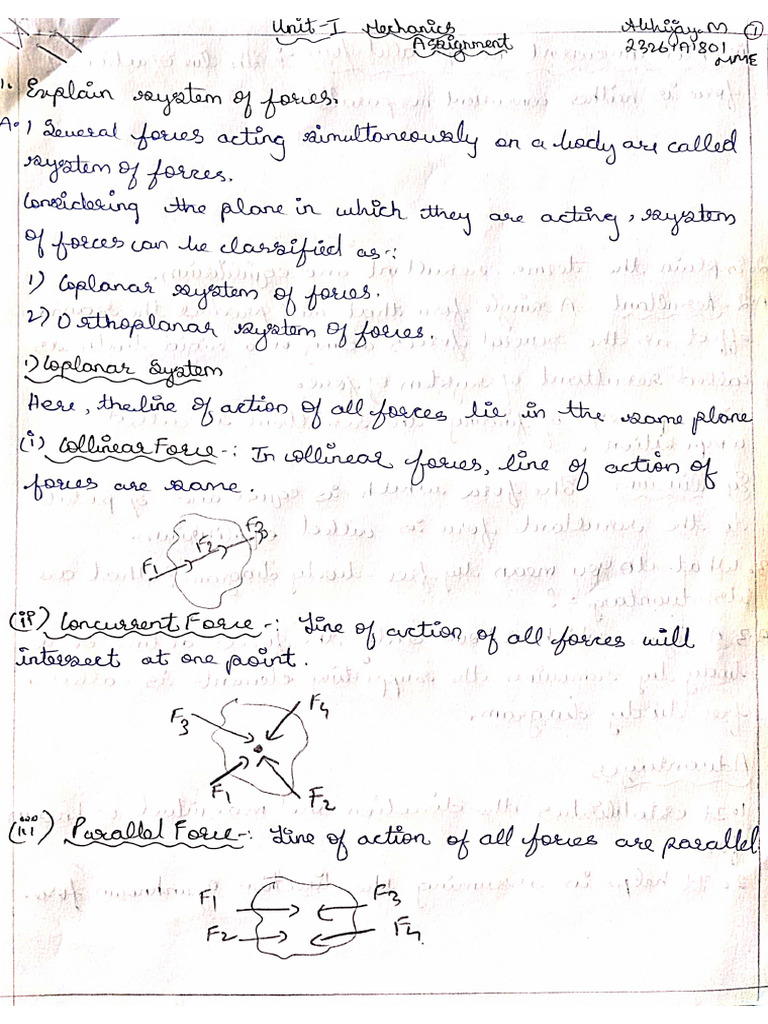 Unit-I Mechanics Abhijay.M 1
Assignment 23261A1801
1. Explain system of forces.
A.) Several forces acting simultaneously on a body are called
system of forces.
Considering the plane in which they are acting, system
of forces can be classified as-:
1) Coplanar system of forces.
2) Orthoplanar system of forces.
1) Coplanar System
Here, the line of action of all forces lie in the same plane
(i) Collinear Force-: In collinear forces, line of action of
forces are same.
F1 F2 F3
(ii) Concurrent Force-: Line of action of all forces will
intersect at one point.
F3 F4
F1 F2
(iii) Parallel Force-: Line of action of all forces are parallel
F1 F3
F2 F4